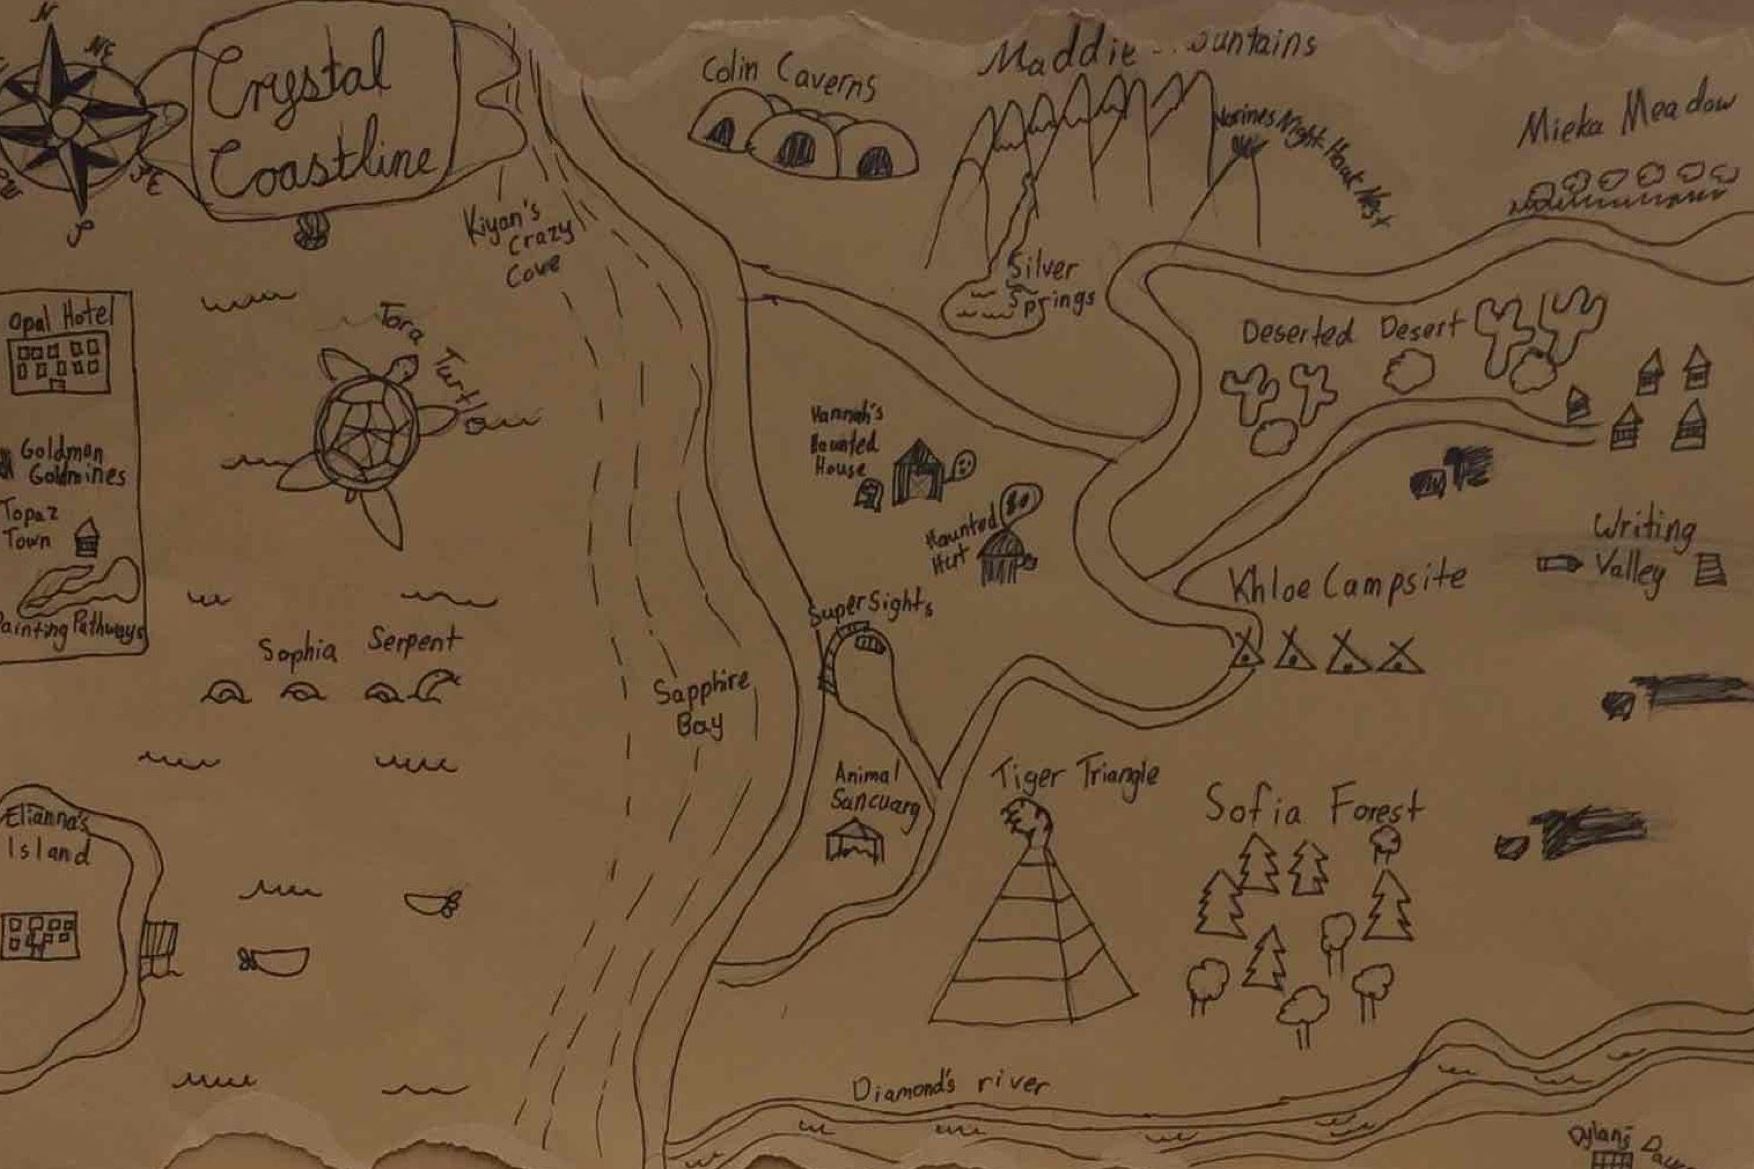 N
NE
SE
S
Crystal
Coastline
Colin Caverns
Maddie
Norines Night Hawk Nest
Mieka Meadow
Kiyan's
Crazy
Cove
Silver
Springs
Opal Hotel
Tora Turtle
Deserted Desert
Hannah's
Haunted
House
Goldman
Goldmines
Topaz
Town
Haunted
Hut
Writing
Valley
Khloe Campsite
Super Sights
Painting Pathways
Sophia Serpent
Sapphire
Bay
Animal
Sancuary
Tiger Triangle
Sofia Forest
Elianna's
Island
Diamond's river
Dylan's